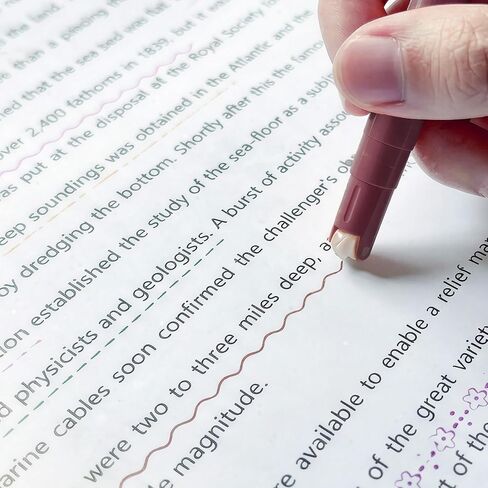 than a pinning
that the sea bed was flat
over 2,400 fathoms in 1839, but it
as put at the disposal at the Royal Society
eep soundings was obtained in the Atlantic and the
by dredging the bottom. Shortly after this the famous
ion established the study of the sea-floor as a
d physicists and geologists. A burst of activity asso
arine cables soon confirmed the challenger's
were two to three miles deep, a
le magnitude.
re available to enable a relief ma
of the great variety
t of the